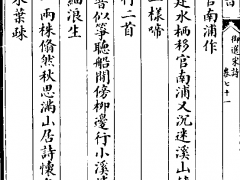 御選宋詩
卷七十一
官南浦作
是水栖移官南浦又沉迷溪山
一樣啼
行二首
似箏聽船開傍柳邊行小溪
細浪生
兩株翛然秋思滿山居詩懷
葉疎